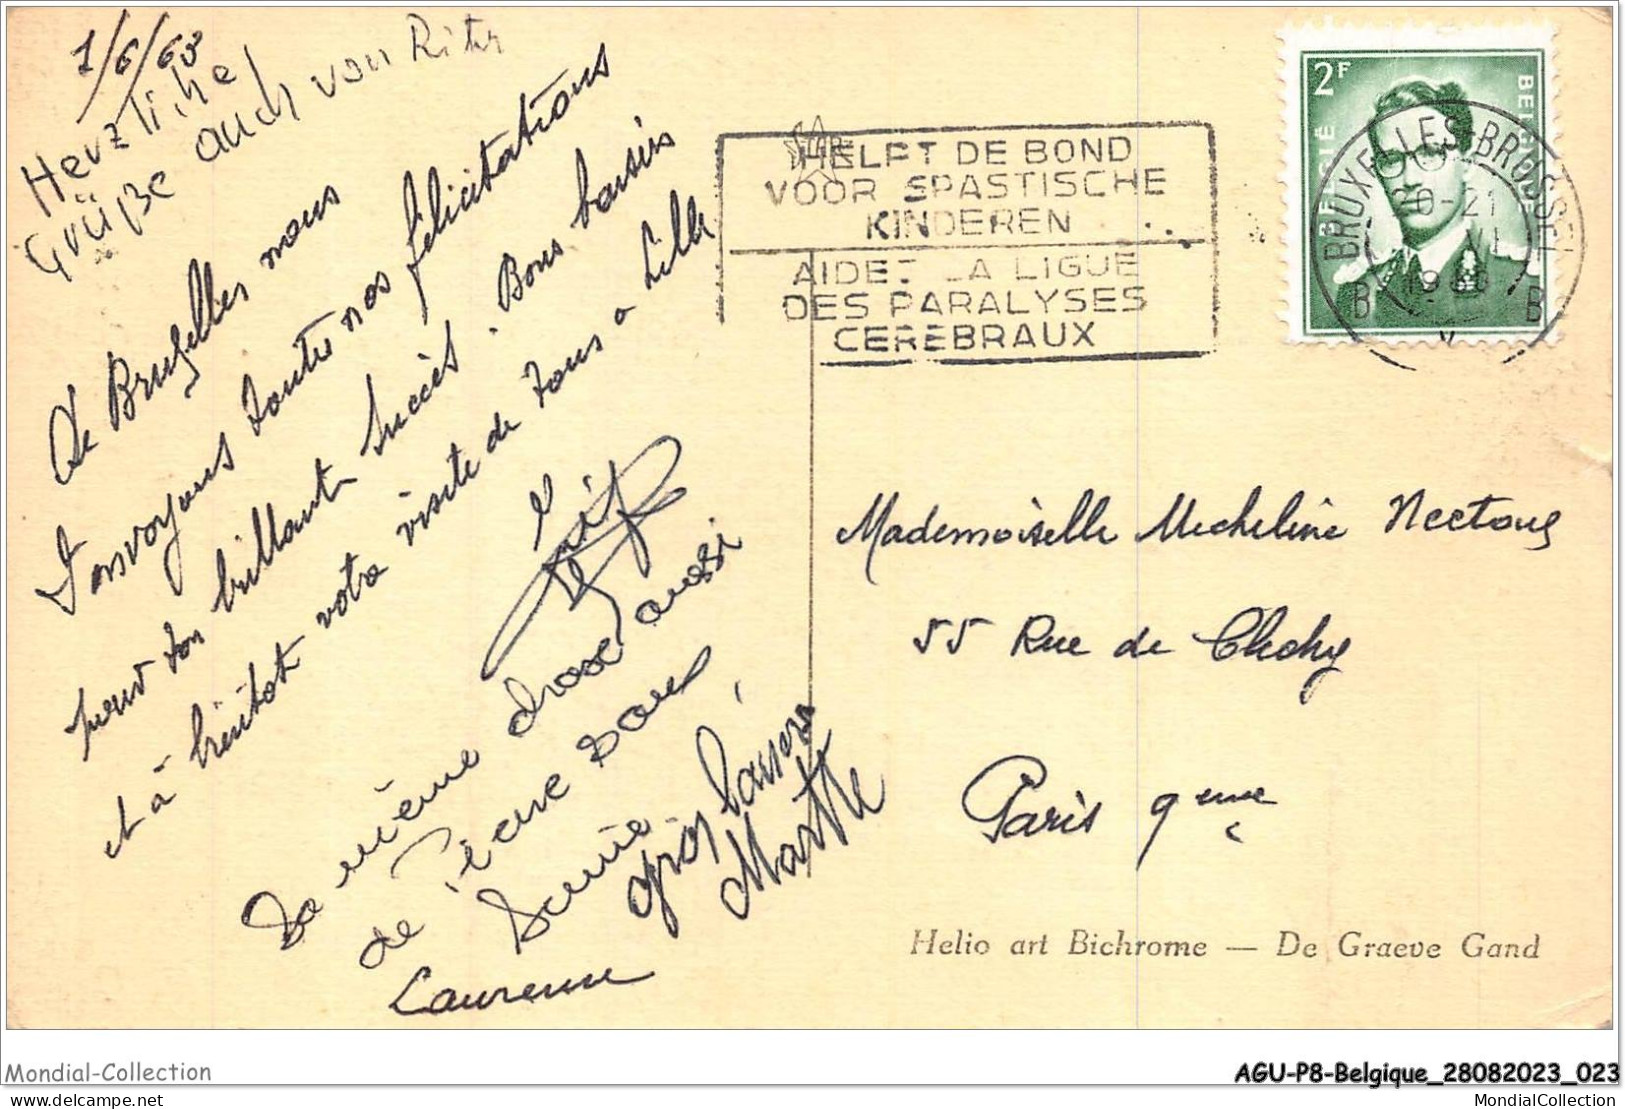 1/6/68
Herzliche
Grüße auch von Rita
De Bruxelles nous
t'envoyons toutes nos félicitations
pour ton brillant succès. Bons baisers
et à bientôt votre visite de tous à Lille
La même chose aussi
de
Sonia
Laurence
gros baisers
Marthe
HELPT DE BOND
VOOR SPASTISCHE
KINDEREN
AIDEZ LA LIGUE
DES PARALYSES
CEREBRAUX
2F
BELGIË
BELGIQUE
BRUXELLES-BRUSSEL
20-21
VI
1968
B B
Mademoiselle Micheline Nectoux
55 Rue de Clichy
Paris 9eme
Helio art Bichrome — De Graeve Gand
Mondial-Collection
AGU-P8-Belgique_28082023_023
delcampe.net
MondialCollection